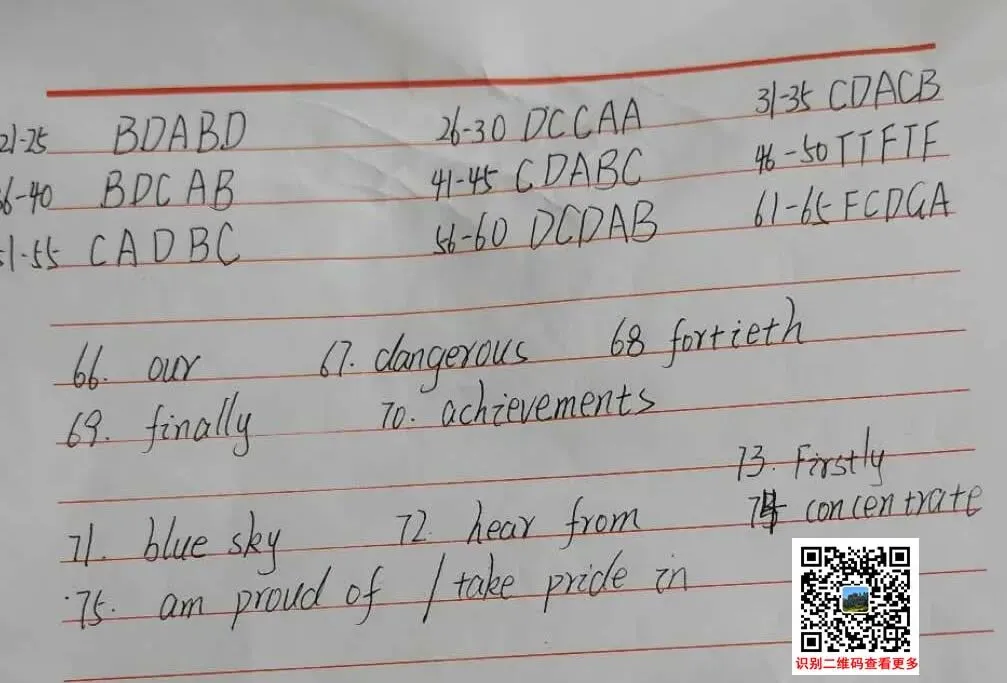 21-25 BDABD 26-30 DCCAA 31-35 CDACB
36-40 BDCAB 41-45 CDABC 46-50 TTFTF
51-55 CADBC 56-60 DCDAB 61-65 FCDGA
66. our 67. dangerous 68 fortieth
69. finally 70. achievements
73. Firstly
71. blue sky 72. hear from 74 concentrate
75. am proud of / take pride in
识别二维码查看更多